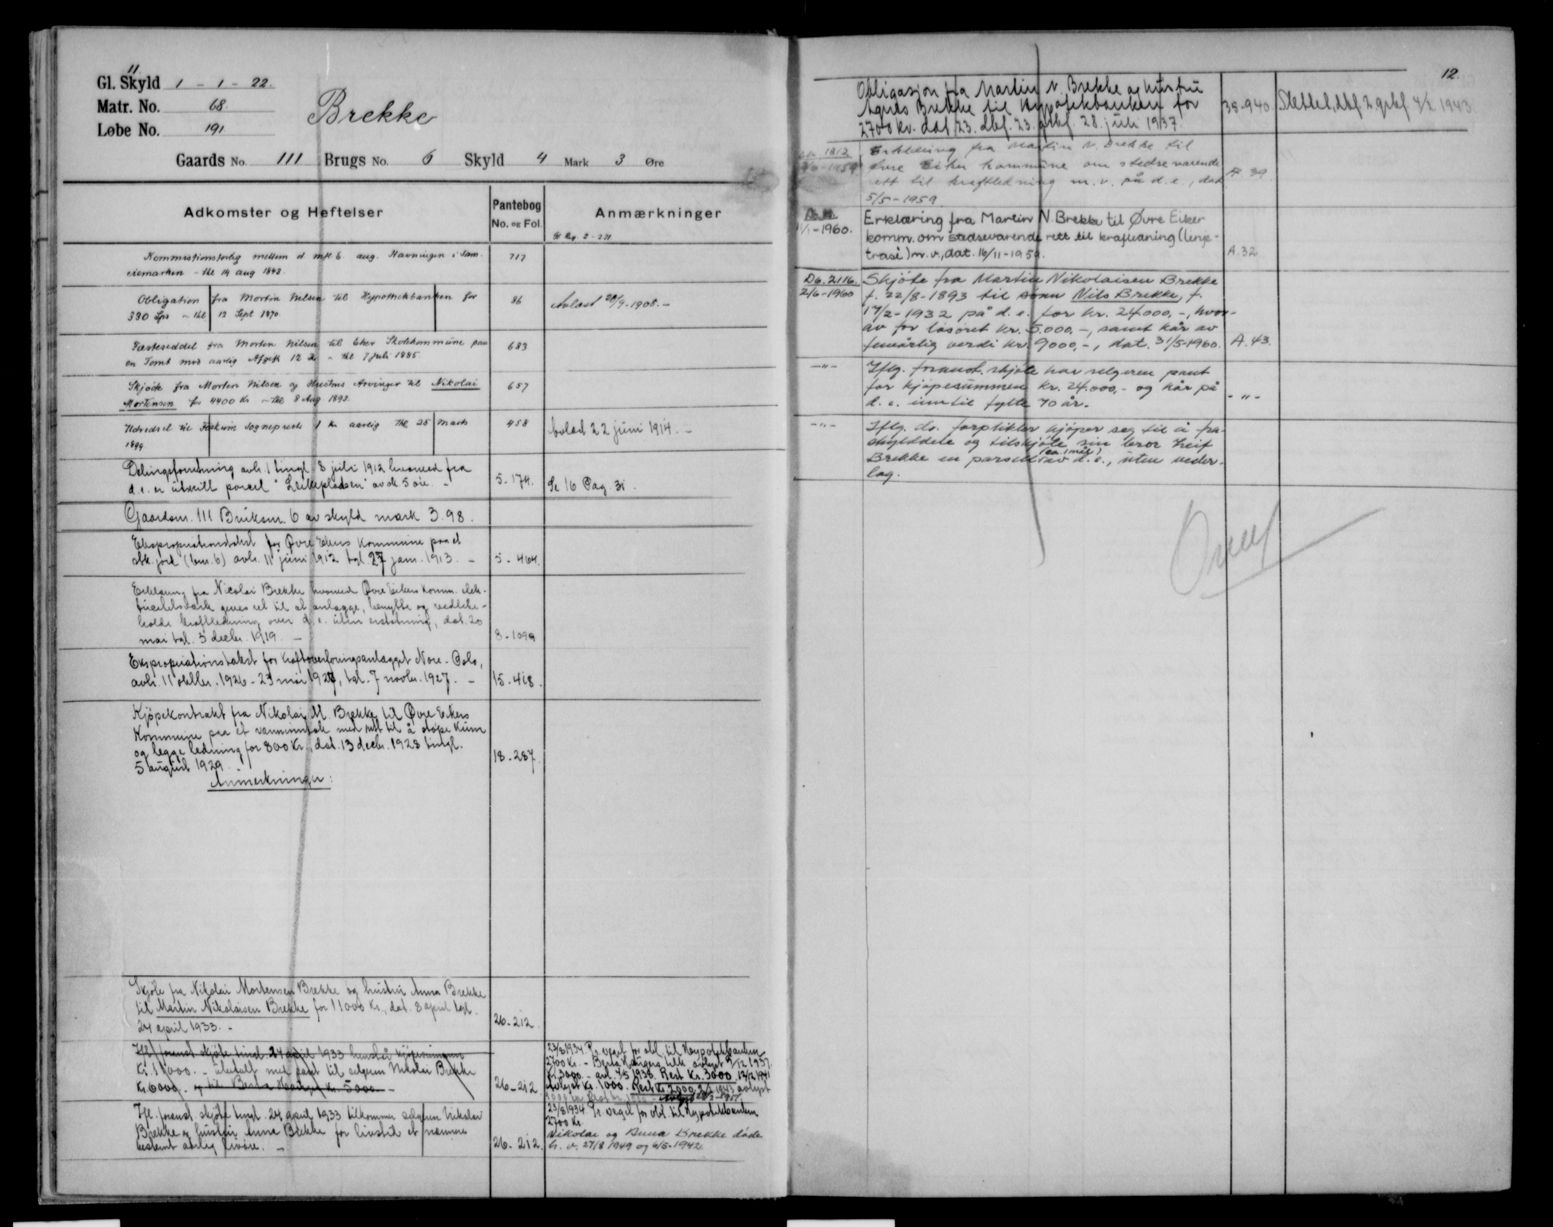 11
Gl. Skyld 1 - 1 - 22.
Matr. No. 68.
Løbe No. 191.
Brekke
Gaards No. 111 Brugs No. 6 Skyld 4 Mark 3 Øre
Adkomster og Heftelser
Pantebog
No. og Fol.
Anmærkninger
mellem d mfl & aug. Havningen i Sam-
eiemarken - thl 14 aug 1843.
717
Obligation fra Morten Nilsen til Hypothekbanken for
330 Spd - thl 12 Sept 1870
86
Aflæst 28/9-1908. -
Fæsteseddel fra Morten Nilsen til Eker Skolekommune paa
en Tomt mod aarlig Afgift 12 - thl 7 Juli 1885.
683
Skjøde fra Morten Nilsen og Hustrus Arvinger til Nikolai
Mortensen for 4400 Kr - thl 8 Aug 1892.
657
til Sogneprest 1 Kr. aarlig thl 25 marts
1899
458
Avlæst 22 juni 1914. -
Delingsforretning avh. 1 tingl. 8 juli 1912 hvorved fra
d. e. er utskilt parcel "Leikepladsen" av sk. 5 øre. -
5-174.
Se 16 Pag. 31.
Gaardsnr. 111 Bruksnr. 6 av skyld mark 3.98.
Ekspropriationstakst for Øvre Ekers kommune paa et
stk. jord (bnr. 6) avh. 11 juni 1912 tgl. 27 jan. 1913. -
5 - 464.
Erklæring fra Nicolai Brekke hvorved Øvre Eikers komm. elek-
tricitetsverk gives ret til at anlægge, benytte og vedlike-
holde kraftledning over d. e. uten erstatning, dat. 20
mai tgl. 5 decbr. 1919. -
8-1099
Ekspropriationstakst for kraftoverføringsanlægget Nore - Oslo,
avh. 11 oktbr. 1926 - 23 mai 1927, tgl. 7 novbr. 1927. -
15-468.
Kjøpekontrakt fra Nikolai M. Brekke til Øvre Eikers
Kommune paa et med ret til å støpe kum
og legge ledning for 800 Kr., dat. 13 decbr. 1928 tingl.
5 august 1929. -
18-287.
Anmerkninger:
Skjøte fra Nikolai Mortensen Brekke og hustru Anna Brekke
til Martin Nikolaisen Brekke for 11000 Kr., dat. 8 april tgl.
24 april 1933. -
26-212.
Ifl. foranst. skjøte tingl. 24 april 1933 henstår kjøpesummen
Kr. 11000. - med pant til selgeren Nikolai Brekke
Kr. 6000. og til Kr. 5000. -
26-212
Ifl. foranst. skjøte tingl. 24 april 1933 tilkommer selgeren Nikolai
Brekke og hustru Anna Brekke for livstid et nærmere
bestemt aarlig livøre. -
26-212.
23/8 1934 Se veget for obl. til Hypotekbanken
2700 Kr.
Nikolai og Anna Brekke døde
h. v. 27/8 1949 og 6/5-1942.
12.
Obligasjon fra Martin N. Brekke og hustru
Agnes Brekke til Hypotekbanken for
2700 kr. dat. 23. dbf. 23. gtbf. 28. juli 1937.
38-940
Slettet, dbf. 2. grbf. 4/2 1943.
Erklæring fra Martin N. Brekke til
Øvre Eiker kommune om stedsevarende
rett til kraftledning m.v. på d.e., dat.
5/5-1959.
A. 39
1/1-1960.
Erklæring fra Martin N Brekke til Øvre Eiker
komm. om stedsevarende rett til kraftledning (linje-
trasé) m.v., dat. 16/11-1959.
A. 32
Db. 2116.
2/6-1960
Skjøte fra Martin Nikolaisen Brekke
f. 22/8-1893 til sønn Nils Brekke, f.
17/2-1932 på d.e. for kr. 24.000,-, hvor-
av for løsøret kr. 5.000,-, samt kår av
femårlig verdi kr. 9000,-, dat. 31/5-1960.
A. 43.
-"-
Iflg. foranst. skjøte har selgeren pant
for kjøpesummen kr. 24.000,- og kår på
d.e. inntil fylte 70 år.
-"-
-"-
Iflg. do. forplikter kjøper seg til å fra-
skylddele og tilskjøte sin bror Leif
Brekke en parsell (ca. 1 mål) av d.e., uten veder-
lag.